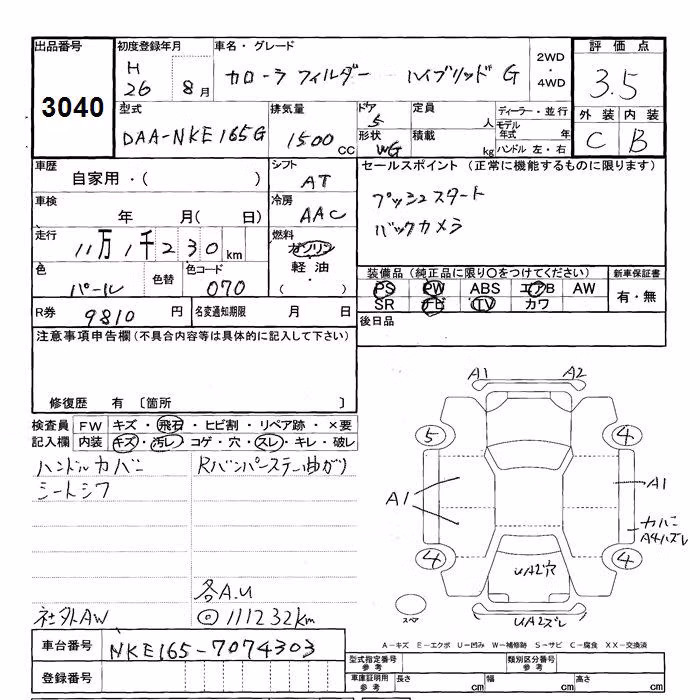 出品番号 初度登録年月 車名・グレード 2WD・4WD 評価点
3040 H 26 8月 カローラフィルダー ハイブリッド G 3.5
型式 排気量 ドア 定員 ディーラー・並行 外装 内装
DAA-NKE165G 1500 CC 5 人 モデル年式 年 C B
形状 WG 積載 kg ハンドル 左・右
車歴 シフト セールスポイント (正常に機能するものに限ります)
自家用・( ) AT プッシュスタート
車検 冷房 バックカメラ
年 月( 日) AAC
走行 燃料
11万1千230km ガソリン
軽油
・
( )
色 色替 色コード 装備品(純正品に限り○をつけてください) 新車保証書
パール 070 PS PW ABS エアB AW 有・無
SR ナビ TV カワ
R券 9810 円 名変通知期限 月 日 後日品
注意事項申告欄(不具合内容等は具体的に記入して下さい)
修復歴 有 〔箇所 〕
検査員記入欄 FW キズ・飛石・ヒビ割・リペア跡・×要
内装 キズ・汚レ・コゲ・穴・スレ・キレ・破レ
ハンドルカバー Rバンパーステー曲ガリ
シートシワ
各A.U
社外AW ◎111232km
A1 A2
5 4
A1 A1
カバー
A4ハズレ
4 4
UA2穴
スペア UA2ズレ
車台番号 NKE165-7074303
A-キズ E-エクボ U-凹み W-補修跡 S-サビ C-腐食 XX-交換済
登録番号 型式指定番号 参考 類別区分番号 参考
車庫証明用 参考 長さ cm 幅 cm 高さ cm